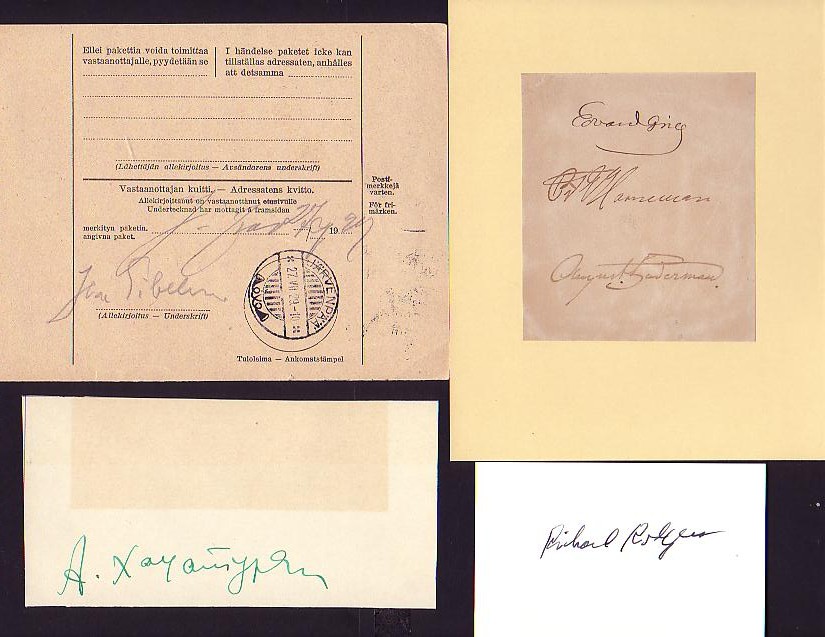 Ellei pakettia voida toimittaa
vastaanottajalle, pyydetään se
I händelse paketet icke kan
tillställas adressaten, anhålles
att detsamma
(Lähettäjän allekirjoitus — Avsändarens underskrift)
Vastaanottajan kuitti. — Adressatens kvitto.
Allekirjoittanut on vastaanottanut etusivulle
Undertecknad har mottagit å framsidan
merkityn paketin.
angivna paket.
19
Jean Sibelius
(Allekirjoitus — Underskrift)
JÄRVENPÄÄ
27.VII.29.-10
Tuloleima — Ankomststämpel
Posti-
merkkejä
varten.
För fri-
märken.
Edvard Grieg
August Söderman
А. Хачатурян
Richard Rodgers